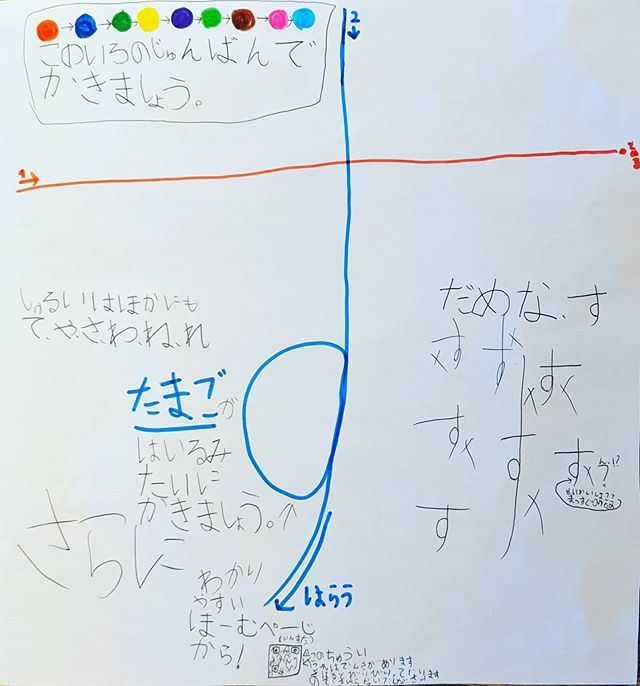 このいろのじゅんばんで
かきましょう。
1
2
とめる
しゅるいはほかにも
て、や、さ、わ、ね、れ
たまごが
はいるみ
たいに
かきましょう。
はらう
さらに
わかり
やすい
ほーむぺーじ
から!
だめな、す
す
す
す
す
す
す
す
ん?!?
このちゅうい